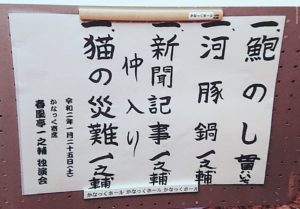 かなっくホール
一、鮑のし 貫いち
一、河豚鍋 一之輔
一、新聞記事 一之輔
仲入り
一、猫の災難 一之輔
令和二年一月二十五日(土)
かなっく寄席
春風亭一之輔 独演会
かなっくホール かなっくホール かなっくホール